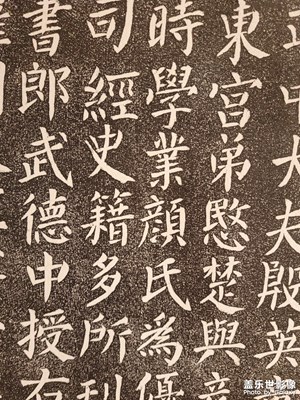 正中大夫殷英
東宮弟愍楚與彥
時學業顏氏為優
司經史籍多所刊
書郎武德中授右
盖乐世影像